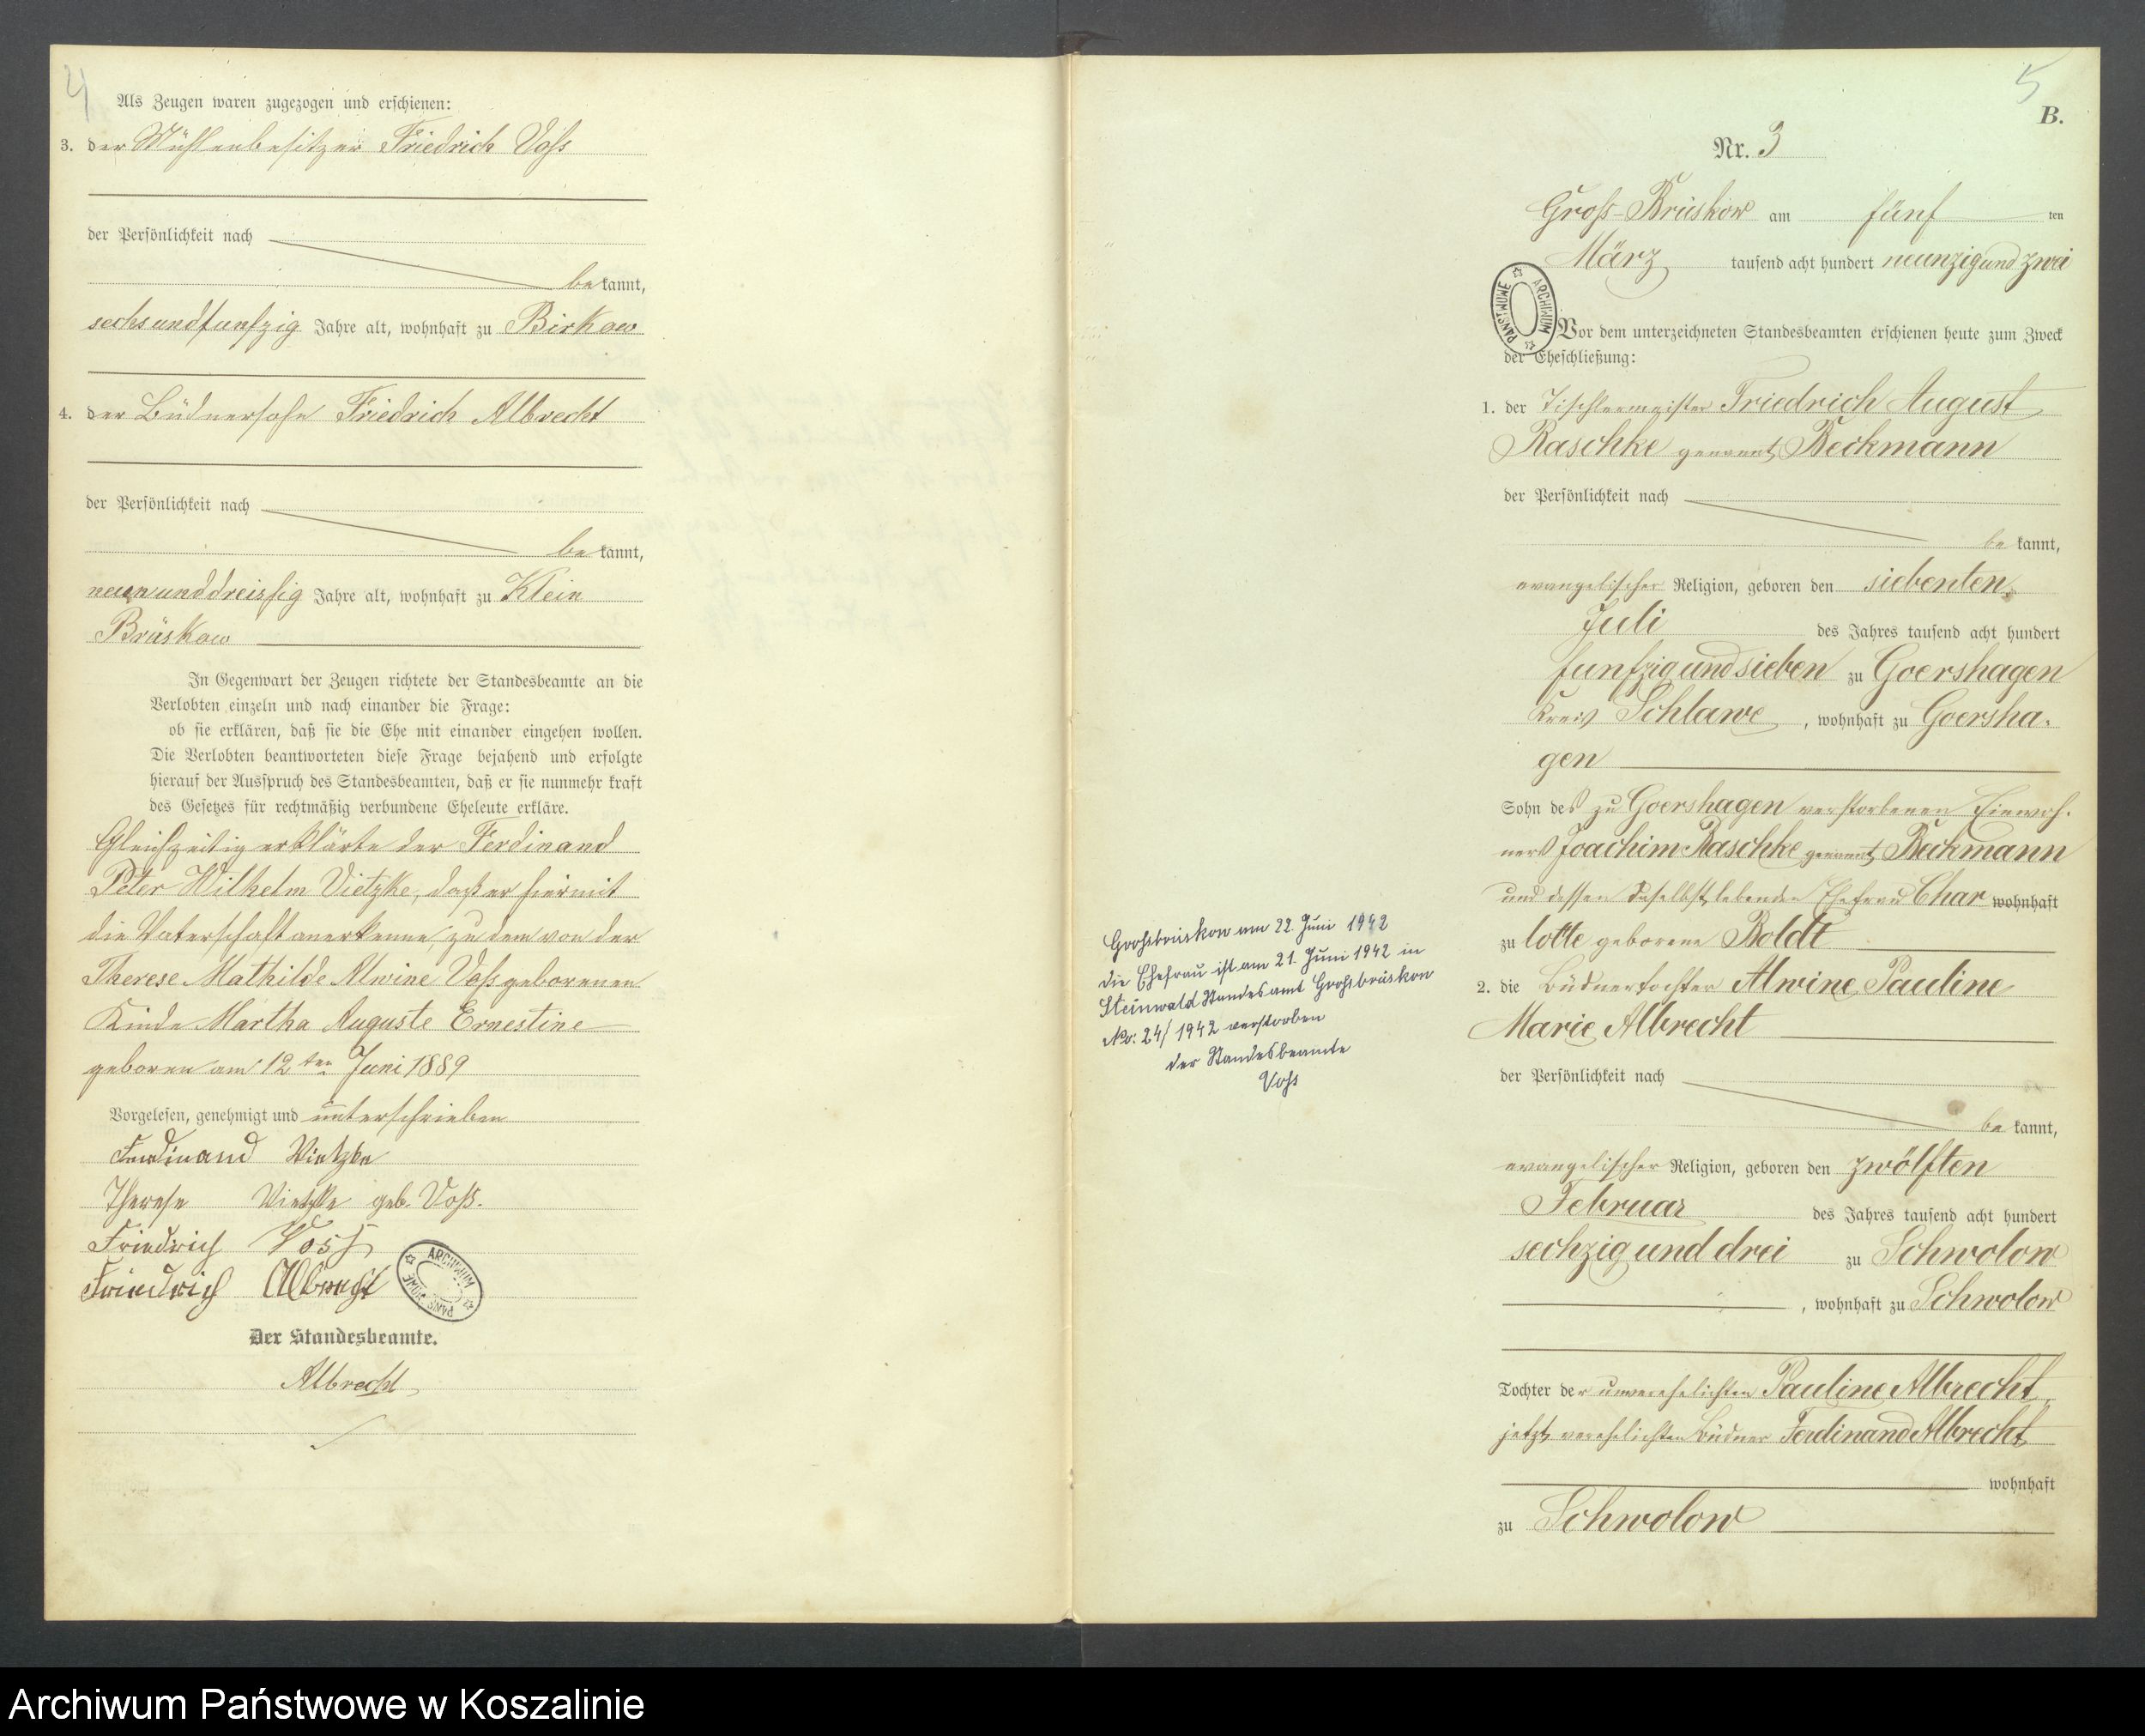 4
Als Zeugen waren zugezogen und erschienen:
3. der Mühlenbesitzer Friedrich Voß
der Persönlichkeit nach
be kannt,
sechsundfunfzig Jahre alt, wohnhaft zu Birkow
4. der Büdnersohn Friedrich Albrecht
der Persönlichkeit nach
be kannt,
neununddreissig Jahre alt, wohnhaft zu Klein
Brüskow
In Gegenwart der Zeugen richtete der Standesbeamte an die
Verlobten einzeln und nach einander die Frage:
ob sie erklären, daß sie die Ehe mit einander eingehen wollen.
Die Verlobten beantworteten diese Frage bejahend und erfolgte
hierauf der Ausspruch des Standesbeamten, daß er sie nunmehr kraft
des Gesetzes für rechtmäßig verbundene Eheleute erkläre.
Gleichzeitig erklärte der Ferdinand
Peter Wilhelm Vietzke, daß er hiermit
die Vaterschaft anerkenne, zu dem von der
Therese Mathilde Alwine Voß geborenen
Kinde Martha Auguste Ernestine
geboren am 12ten Juni 1889
Vorgelesen, genehmigt und unterschrieben
Ferdinand Vietzke
Therese Vietzke geb. Voß.
Friedrich Voss
Friedrich Albrecht
ARCHIWUM PAŃSTWOWE
Der Standesbeamte.
Albrecht
5
B.
Nr. 3
Groß-Brüskow am fünf ten
März tausend acht hundert neunzig und zwei
ARCHIWUM PAŃSTWOWE
Vor dem unterzeichneten Standesbeamten erschienen heute zum Zweck
der Eheschließung:
1. der Tischlermeister Friedrich August
Raschke genannt Beckmann
der Persönlichkeit nach
be kannt,
evangelischer Religion, geboren den siebenten
Juli des Jahres tausend acht hundert
funfzig und sieben zu Goershagen
Kreis Schlawe, wohnhaft zu Goersha-
gen
Sohn des zu Goershagen verstorbenen Einwoh-
ners Joachim Raschke genannt Beckmann
und dessen daselbst lebenden Ehefrau Char wohnhaft
zu lotte geborene Boldt
2. die Büdnertochter Alwine Pauline
Marie Albrecht
der Persönlichkeit nach
be kannt,
evangelischer Religion, geboren den zwölften
Februar des Jahres tausend acht hundert
sechzig und drei zu Schwolow
, wohnhaft zu Schwolow
Tochter der unverehelichten Pauline Albrecht,
jetzt verehelichten Büdner Ferdinand Albrecht
wohnhaft
zu Schwolow
Großbrüskow am 22. Juni 1942
die Ehefrau ist am 21. Juni 1942 in
Steinwald Standesamt Großbrüskow
No: 24/1942 verstorben
der Standesbeamte
Voß
Archiwum Państwowe w Koszalinie